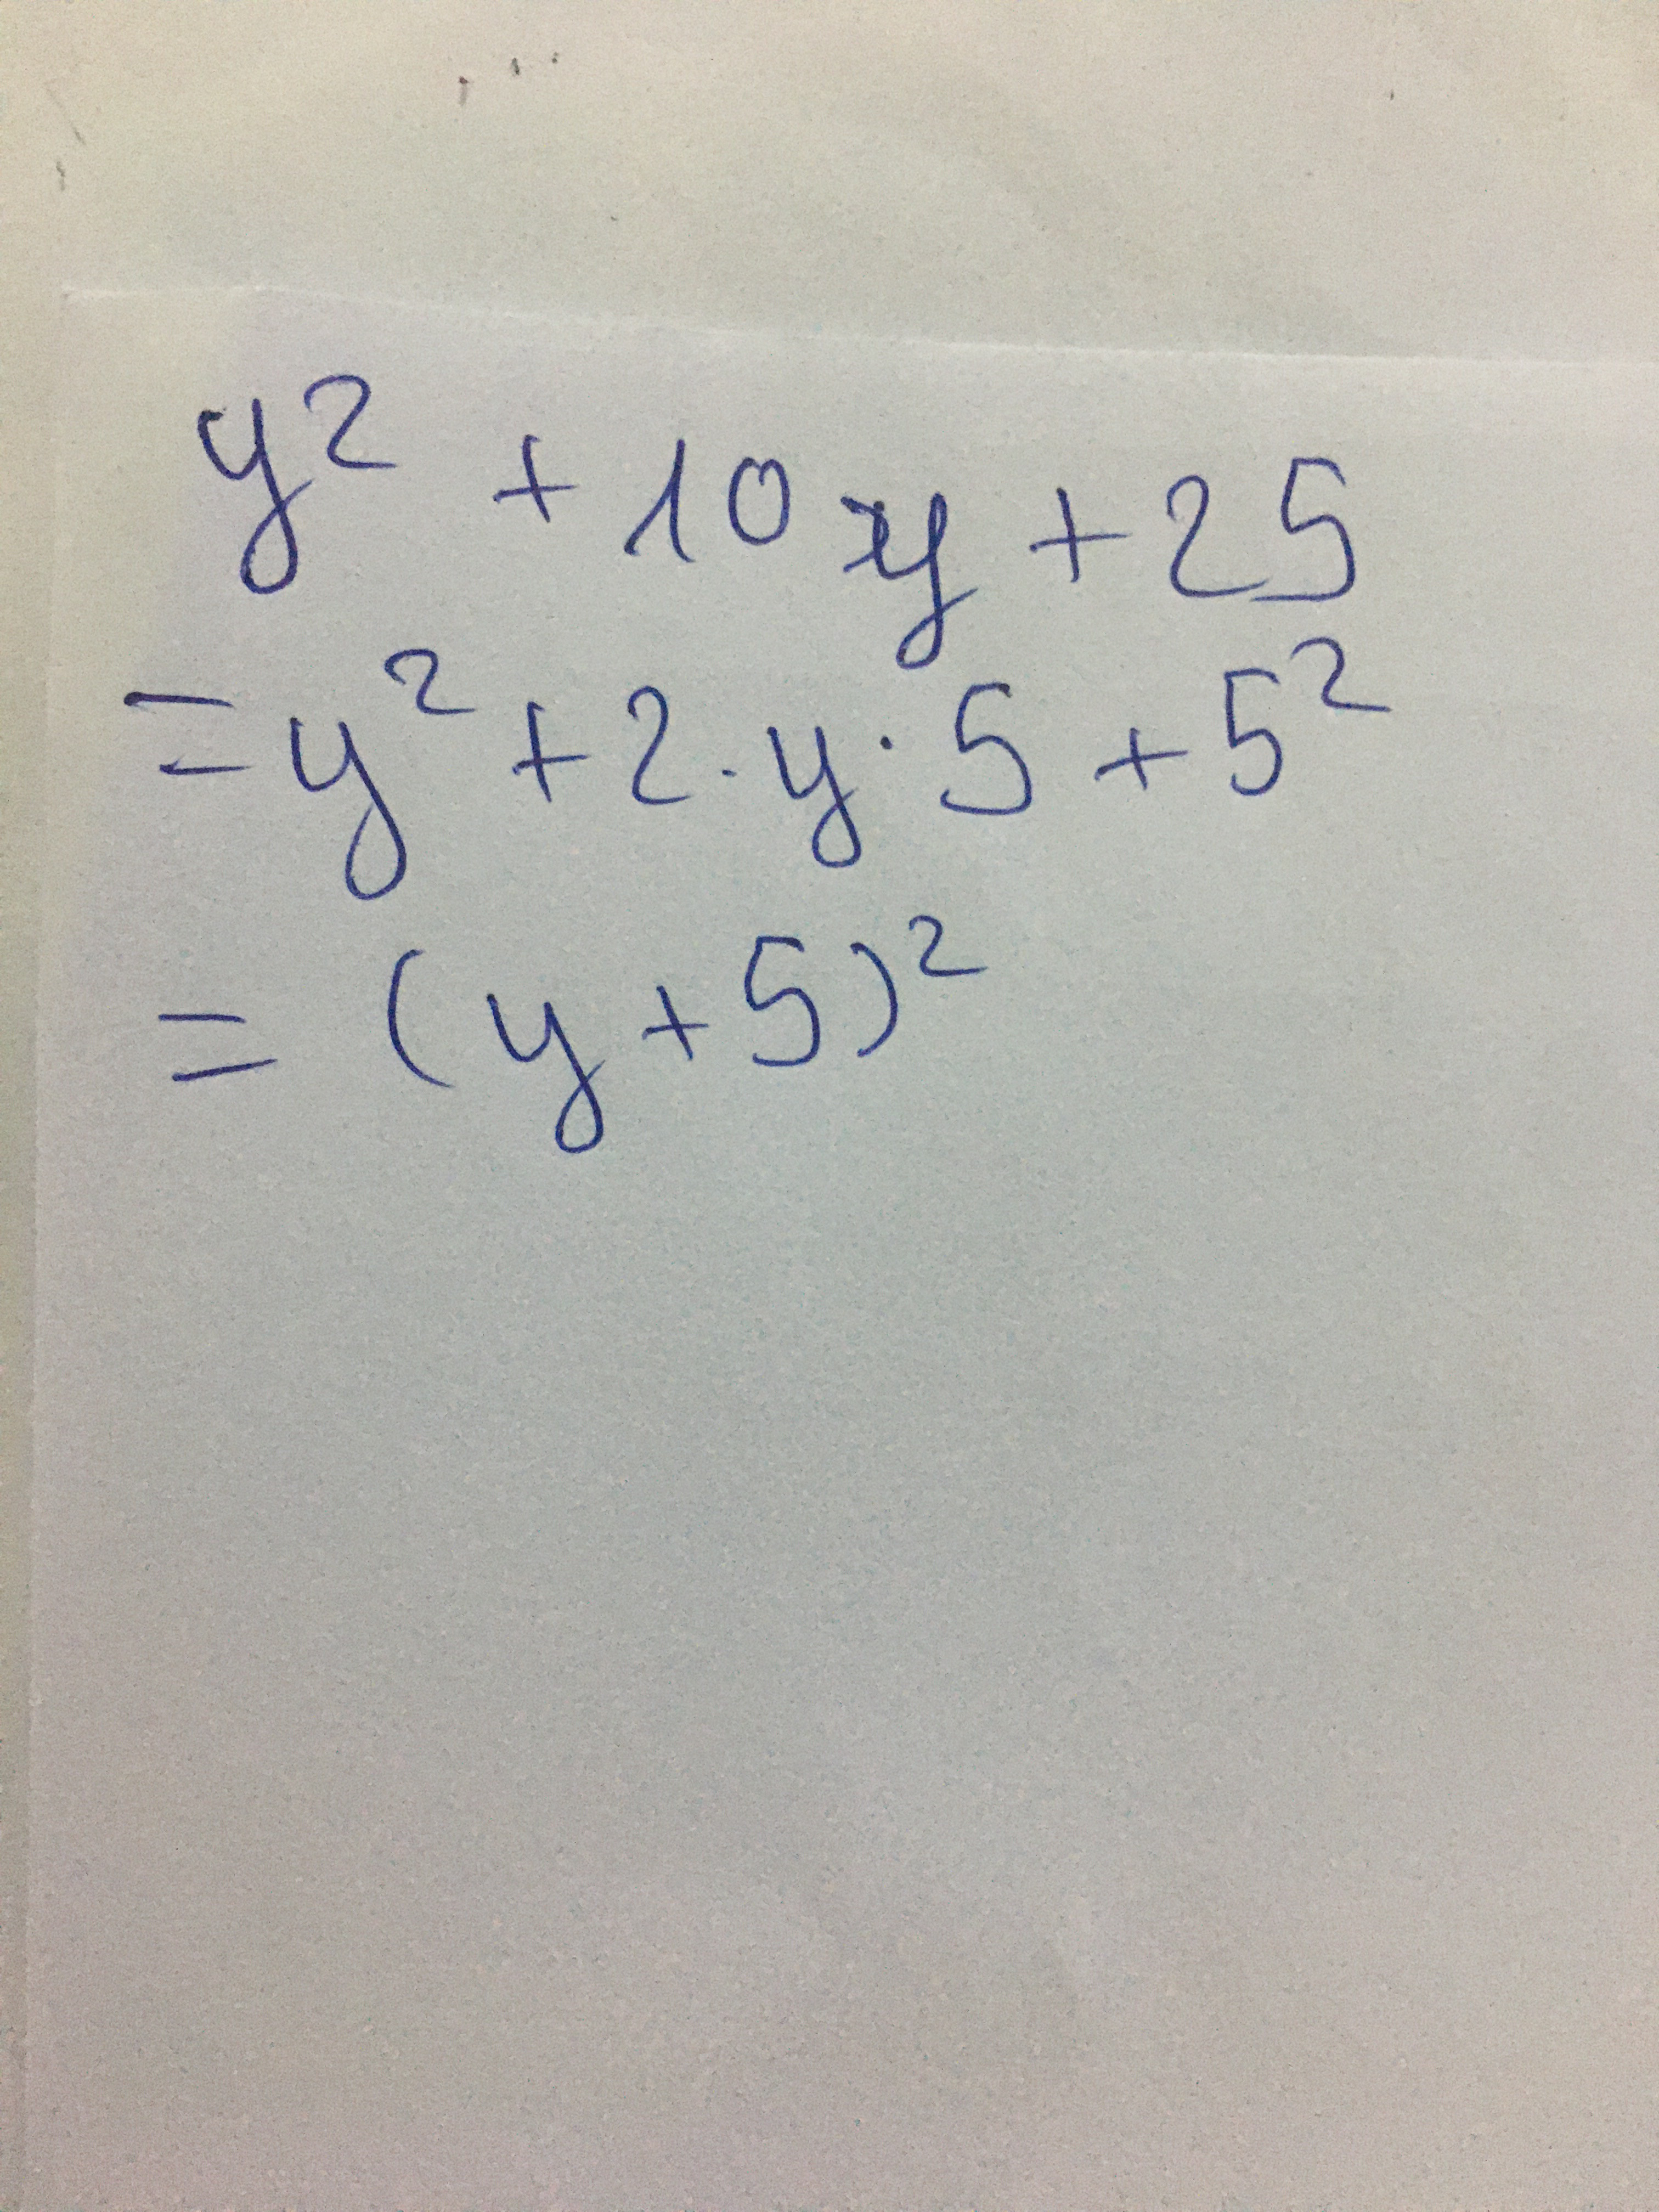 y² + 10y + 25
= y² + 2 . y · 5 + 5²
= (y + 5)²